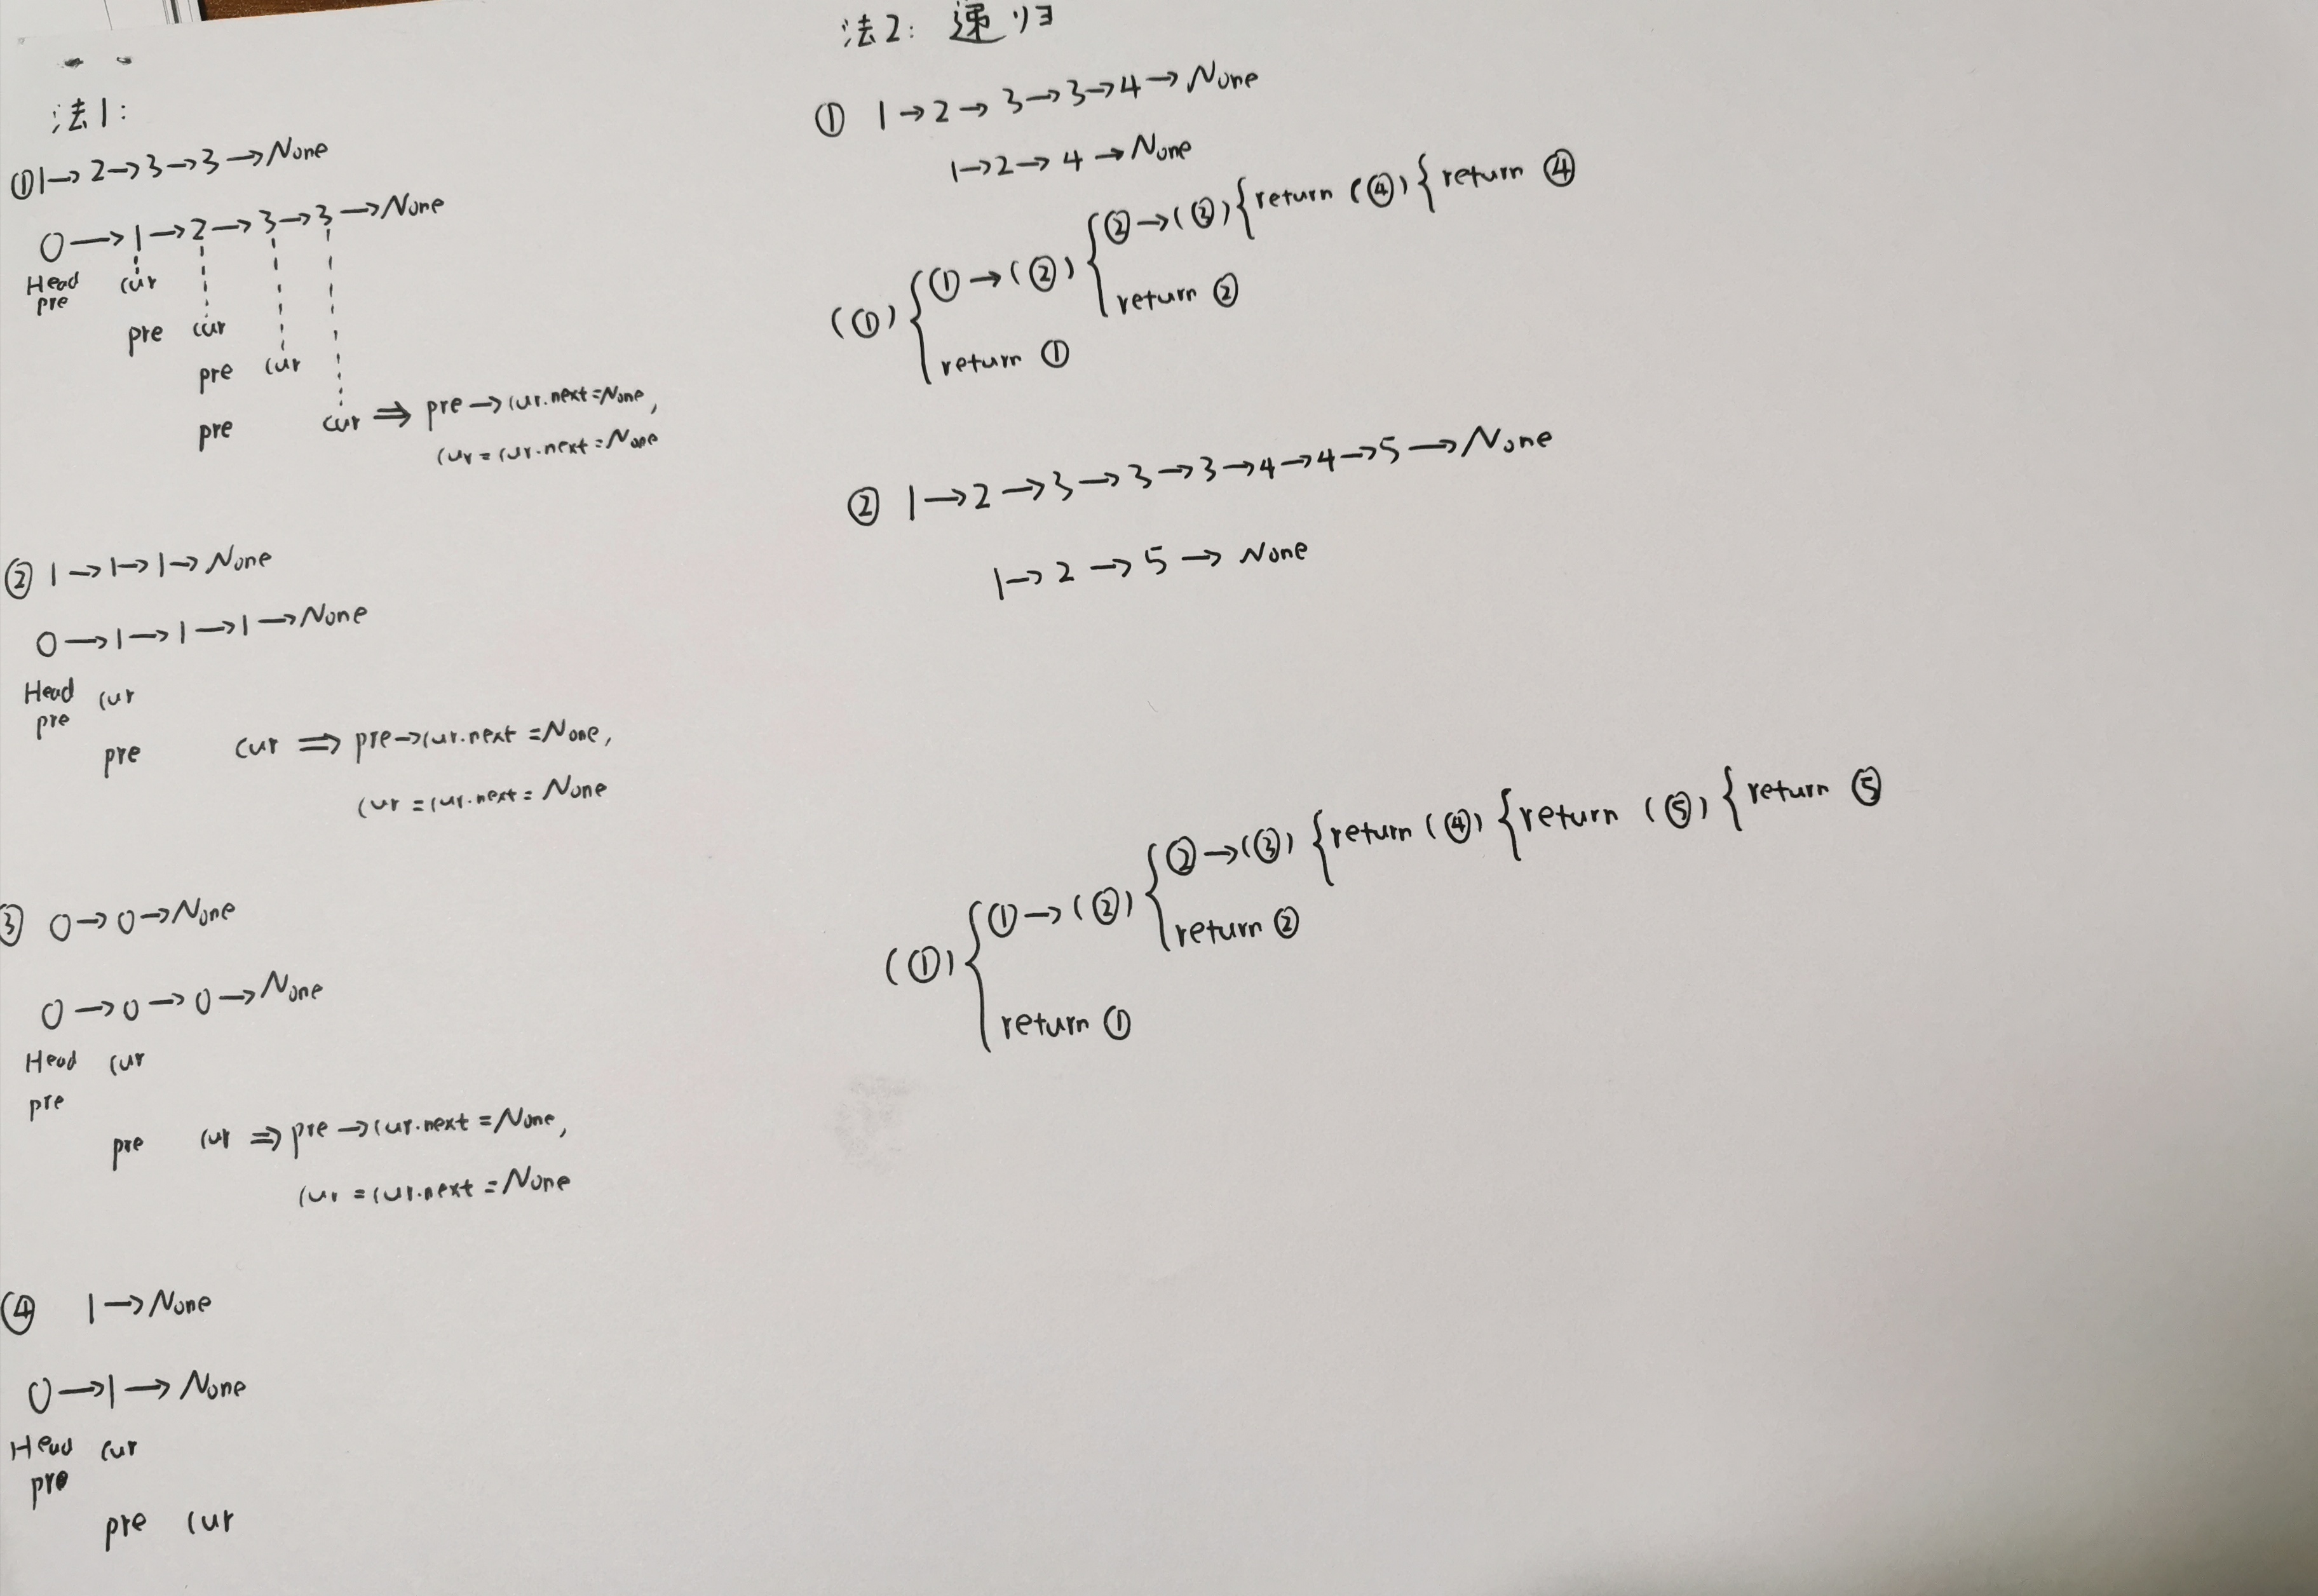 法1:
①1→2→3→3→None
0→1→2→3→3→None
Head cur
pre
pre cur
pre cur
pre cur ⇒ pre→cur.next=None,
cur=cur.next=None
② 1→1→1→None
0→1→1→1→None
Head cur
pre
pre cur ⇒ pre→cur.next=None,
cur=cur.next=None
③ 0→0→None
0→0→0→None
Head cur
pre
pre cur ⇒ pre→cur.next=None,
cur=cur.next=None
④ 1→None
0→1→None
Head cur
pre
pre cur
法2: 递归
① 1→2→3→3→4→None
1→2→4→None
(①){①→(②){②→(③){return (④){return ④
return ②
return ①
② 1→2→3→3→3→4→4→5→None
1→2→5→None
(①){①→(②){②→(③){return (④){return (⑤){return ⑤
return ②
return ①